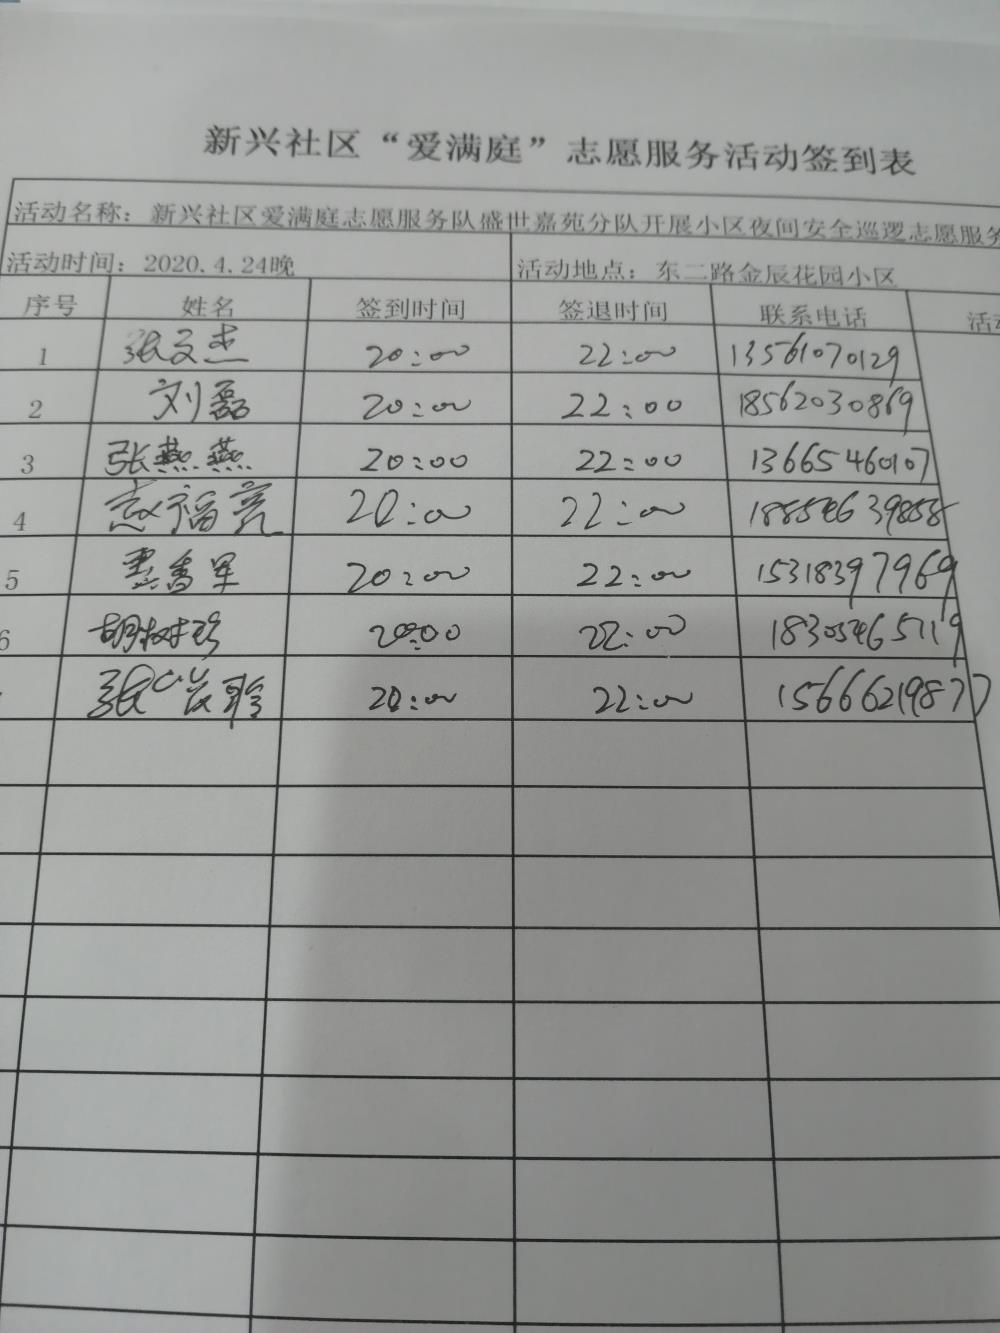 新兴社区“爱满庭”志愿服务活动签到表
活动名称：新兴社区爱满庭志愿服务队盛世嘉苑分队开展小区夜间安全巡逻志愿服务
活动时间：2020.4.24晚 活动地点：东二路金辰花园小区
序号 姓名 签到时间 签退时间 联系电话 活动
1 张文杰 20:00 22:00 13561070129
2 刘磊 20:00 22:00 18562030869
3 张燕燕 20:00 22:00 13665460107
4 20:00 22:00 18854639858
5 20:00 22:00 15318397969
6 胡树珍 20:00 22:00 18305465119
张 20:00 22:00 15666219877